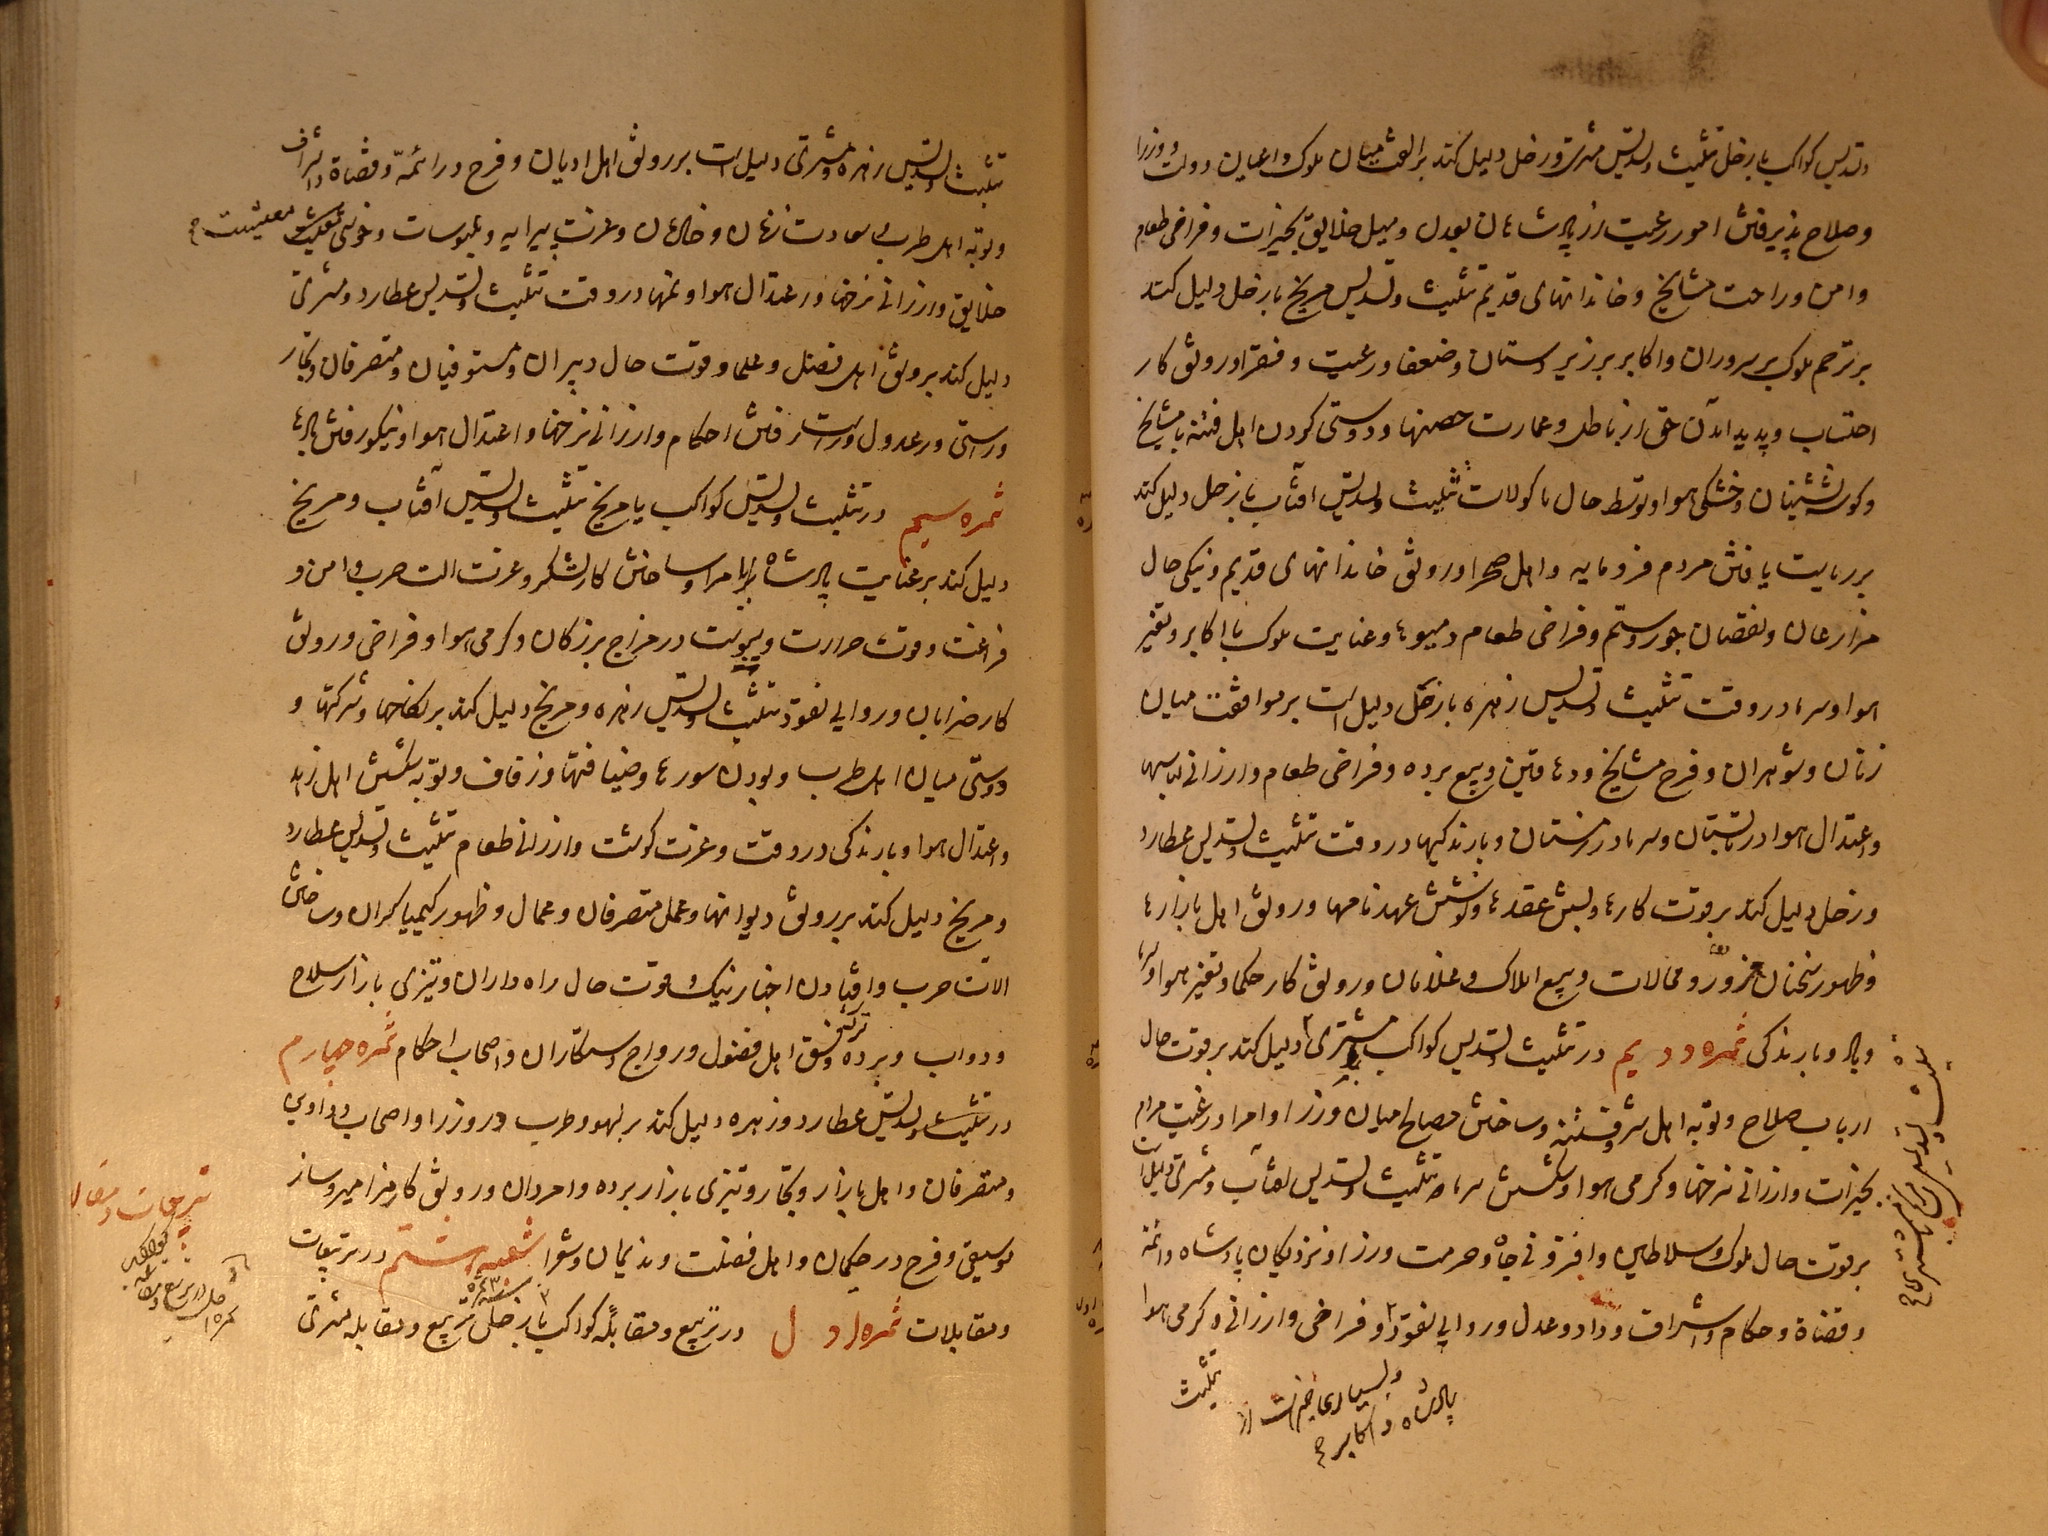 وتسدیس کواکب با زحل تثلیث وتسدیس مشتری وزحل دلیل کند بر الفت میان ملوک واعیان دولت و وزرا
وصلاح پذیرفتن امور رعیت از پادشاهان بعدل ومیل خلایق بخیرات وفراخی طعام
وامن وراحت مشایخ وخاندانهای قدیم تثلیث وتسدیس مریخ با زحل دلیل کند
بر ترحم ملوک بر سروران واکابر بر زیردستان وضعفا ورعیت وفقرا ورونق کار
احتساب وپدید آمدن حق از باطل وعمارت حصنها ودوستی کردن اهل فتنه با مشایخ
وکوشه نشینان وخشکی هوا وتوسط حال ماکولات تثلیث وتسدیس آفتاب با زحل دلیل کند
بر رعایت یافتن مردم فرومایه واهل صحرا ورونق خاندانهای قدیم ونیکی حال
مزارعان ونقصان جور وستم وفراخی طعام ومیوها وعنایت ملوک با اکابر وتغیر
هوا وسرما در وقت تثلیث وتسدیس زهره با زحل دلیل است بر موافقت میان
زنان وشوهران وفرح مشایخ ودهاقین وبیع برده وفراخی طعام وارزانی لباسها
واعتدال هوا در تابستان وسرما در زمستان وبارندکیها در وقت تثلیث وتسدیس عطارد
وزحل دلیل کند بر قوت کارها وبستن عقدها ونوشتن عهدنامها ورونق اهل بازارها
وظهور سخنان مزور ومحالات وبیع املاک وغلامان ورونق کار حکما وتغیر هوا وسرما
وباد وبارندکی ثمره دویم در تثلیث وتسدیس کواکب با مشتری دلیل کند بر قوت حال
ارباب صلاح وتوبه اهل شر وفتنه وساختن مصالح میان وزرا وامرا ورغبت مردم
بخیرات وارزانی نرخها وکرمی هوا وشکستن سرما تثلیث وتسدیس آفتاب ومشتری دلیل است
بر قوت حال ملوک وسلاطین وافزونی جاه وحرمت وزرا ونزدیکان پادشاه وائمه
وقضاة وحکام واشراف وداد وعدل وروایی نقود وفراخی وارزانی وکرمی هوا
وبسیاری خیرات از
پادشاه واکابر
تثلیث
تثلیث وتسدیس مریخ با مشتری
تثلیث وتسدیس زهره ومشتری دلیل است بر رونق اهل ادیان وفرح در ائمه وقضاة واشراف
وتوبه اهل طرب وسعادت زنان وخادمان وعزت پیرایه وملبوسات وخوشی معیشت
خلایق وارزانی نرخها واعتدال هوا ونمها در وقت تثلیث وتسدیس عطارد ومشتری
دلیل کند بر رونق اهل فضل وعلما وقوت حال دبیران ومستوفیان ومتصرفان وتجار
وراستی ورعدول وراست رفتن احکام وارزانی نرخها واعتدال هوا ونیکو رفتن بادها
ثمره سیم در تثلیث وتسدیس کواکب با مریخ تثلیث وتسدیس آفتاب ومریخ
دلیل کند بر عنایت پادشاه با امرا وساختن کار لشکر وعزت آلت حرب وامن و
فراغت وقوت حرارت ویبوست در مزاج بزرکان وکرمی هوا وفراخی ورونق
کار ضرابان وروایی نقود تثلیث وتسدیس زهره ومریخ دلیل کند بر نکاحها وشرکتها و
دوستی میان اهل طرب وبودن سورها وضیافتها وزفاف وتوبه شکستن اهل زهد
واعتدال هوا وبارندکی در وقت وعزت کوشت وارزانی طعام تثلیث وتسدیس عطارد
ومریخ دلیل کند بر رونق دیوانها وعمل متصرفان وعمال وظهور کیمیاکران وساختن
آلات حرب وافتادن اخبار نیک وقوت حال راه داران وتیزی بازار سلاح
ودواب وبرده وفسق اهل فضول ورواج دستکاران واصحاب احکام ثمره چهارم
در تثلیث وتسدیس عطارد وزهره دلیل کند بر لهو وطرب در وزرا واصحاب دواوین
ومتصرفان واهل بازار وتجار وتیزی بازار برده وامردان ورونق کار مزامیر وساز
موسیقی وفرح در حکیمان واهل فضلت وندیمان وشعرا شعبه ششم در تربیعات
ومقابلات ثمره اول در تربیع ومقابله کواکب با زحل تربیع ومقابله مشتری